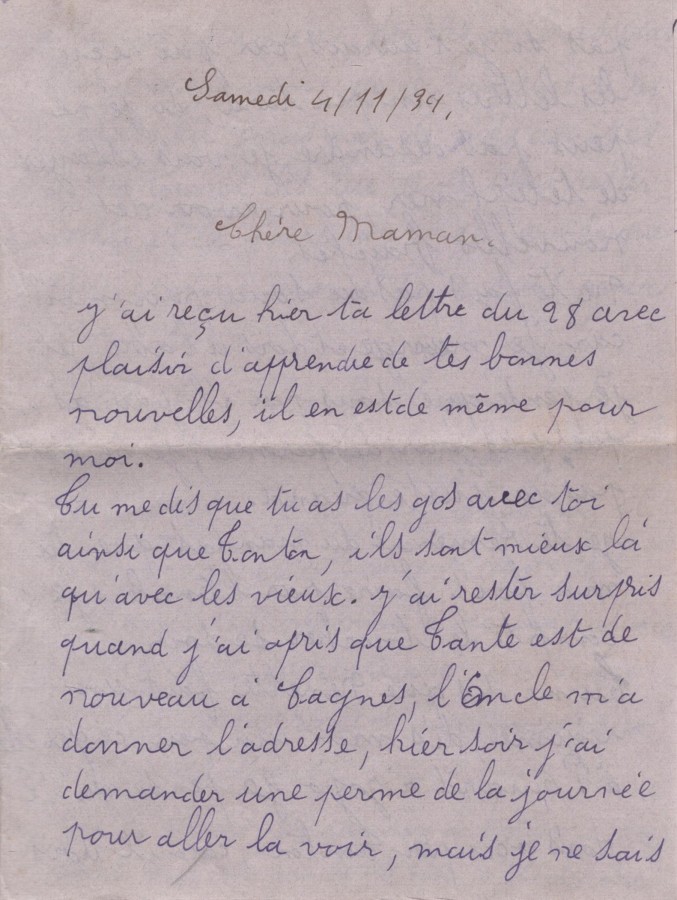 Samedi 4/11/39,
Chère Maman.
j'ai reçu hier ta lettre du 28 avec
plaisir d'apprendre de tes bonnes
nouvelles, il en est de même pour
moi.
Tu me dis que tu as les gos avec toi
ainsi que Tonton, ils sont mieux là
qu'avec les vieux. j'ai rester surpris
quand j'ai apris que Tante est de
nouveau à Cagnes, l'Oncle m'a
donner l'adresse, hier soir j'ai
demander une perme de la journée
pour aller la voir, mais je ne sais